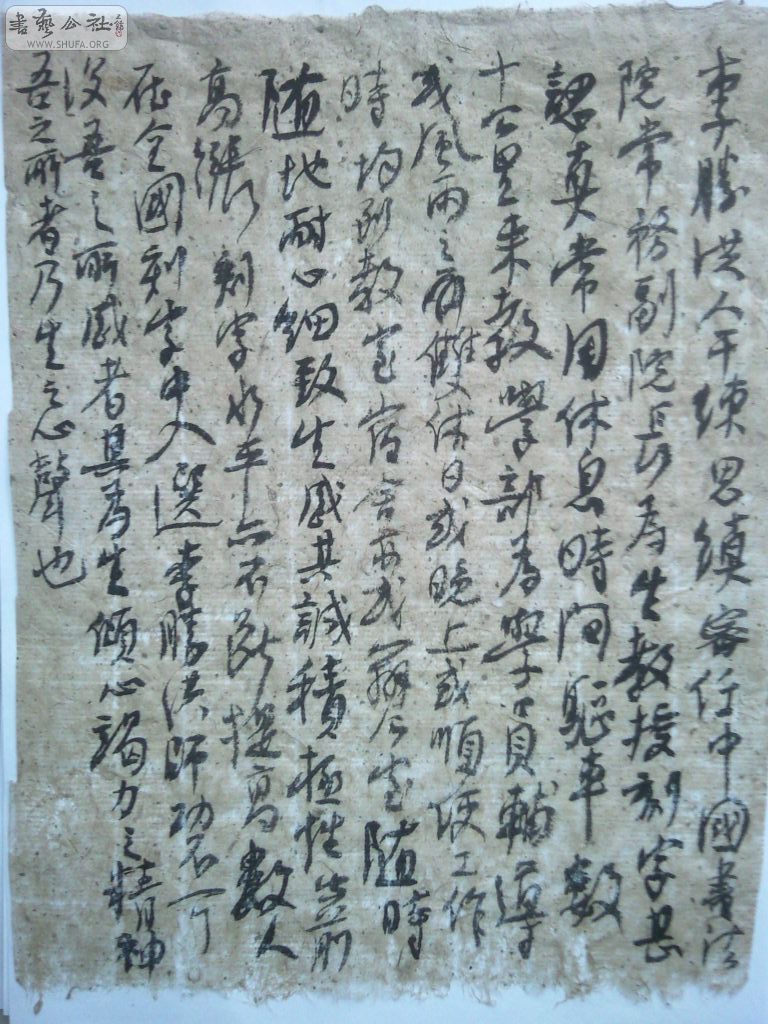 書藝公社
WWW.SHUFA.ORG
李勝洪人干練思縝密任中國書法
院常務副院長為生教授刻字甚
認真常用休息時間驅車數
十公里來教學部為學員輔導
或風雨之夜雙休日或晚上或順便工作
時均到教室宿舍或辦公室隨時
隨地耐心細致生感其誠積極性空前
高漲刻字水平亦不斷提高數人
在全國刻字中入選李勝洪師功不可
沒吾之所感者其為生傾心竭力之精神
吾之所者乃生之心聲也